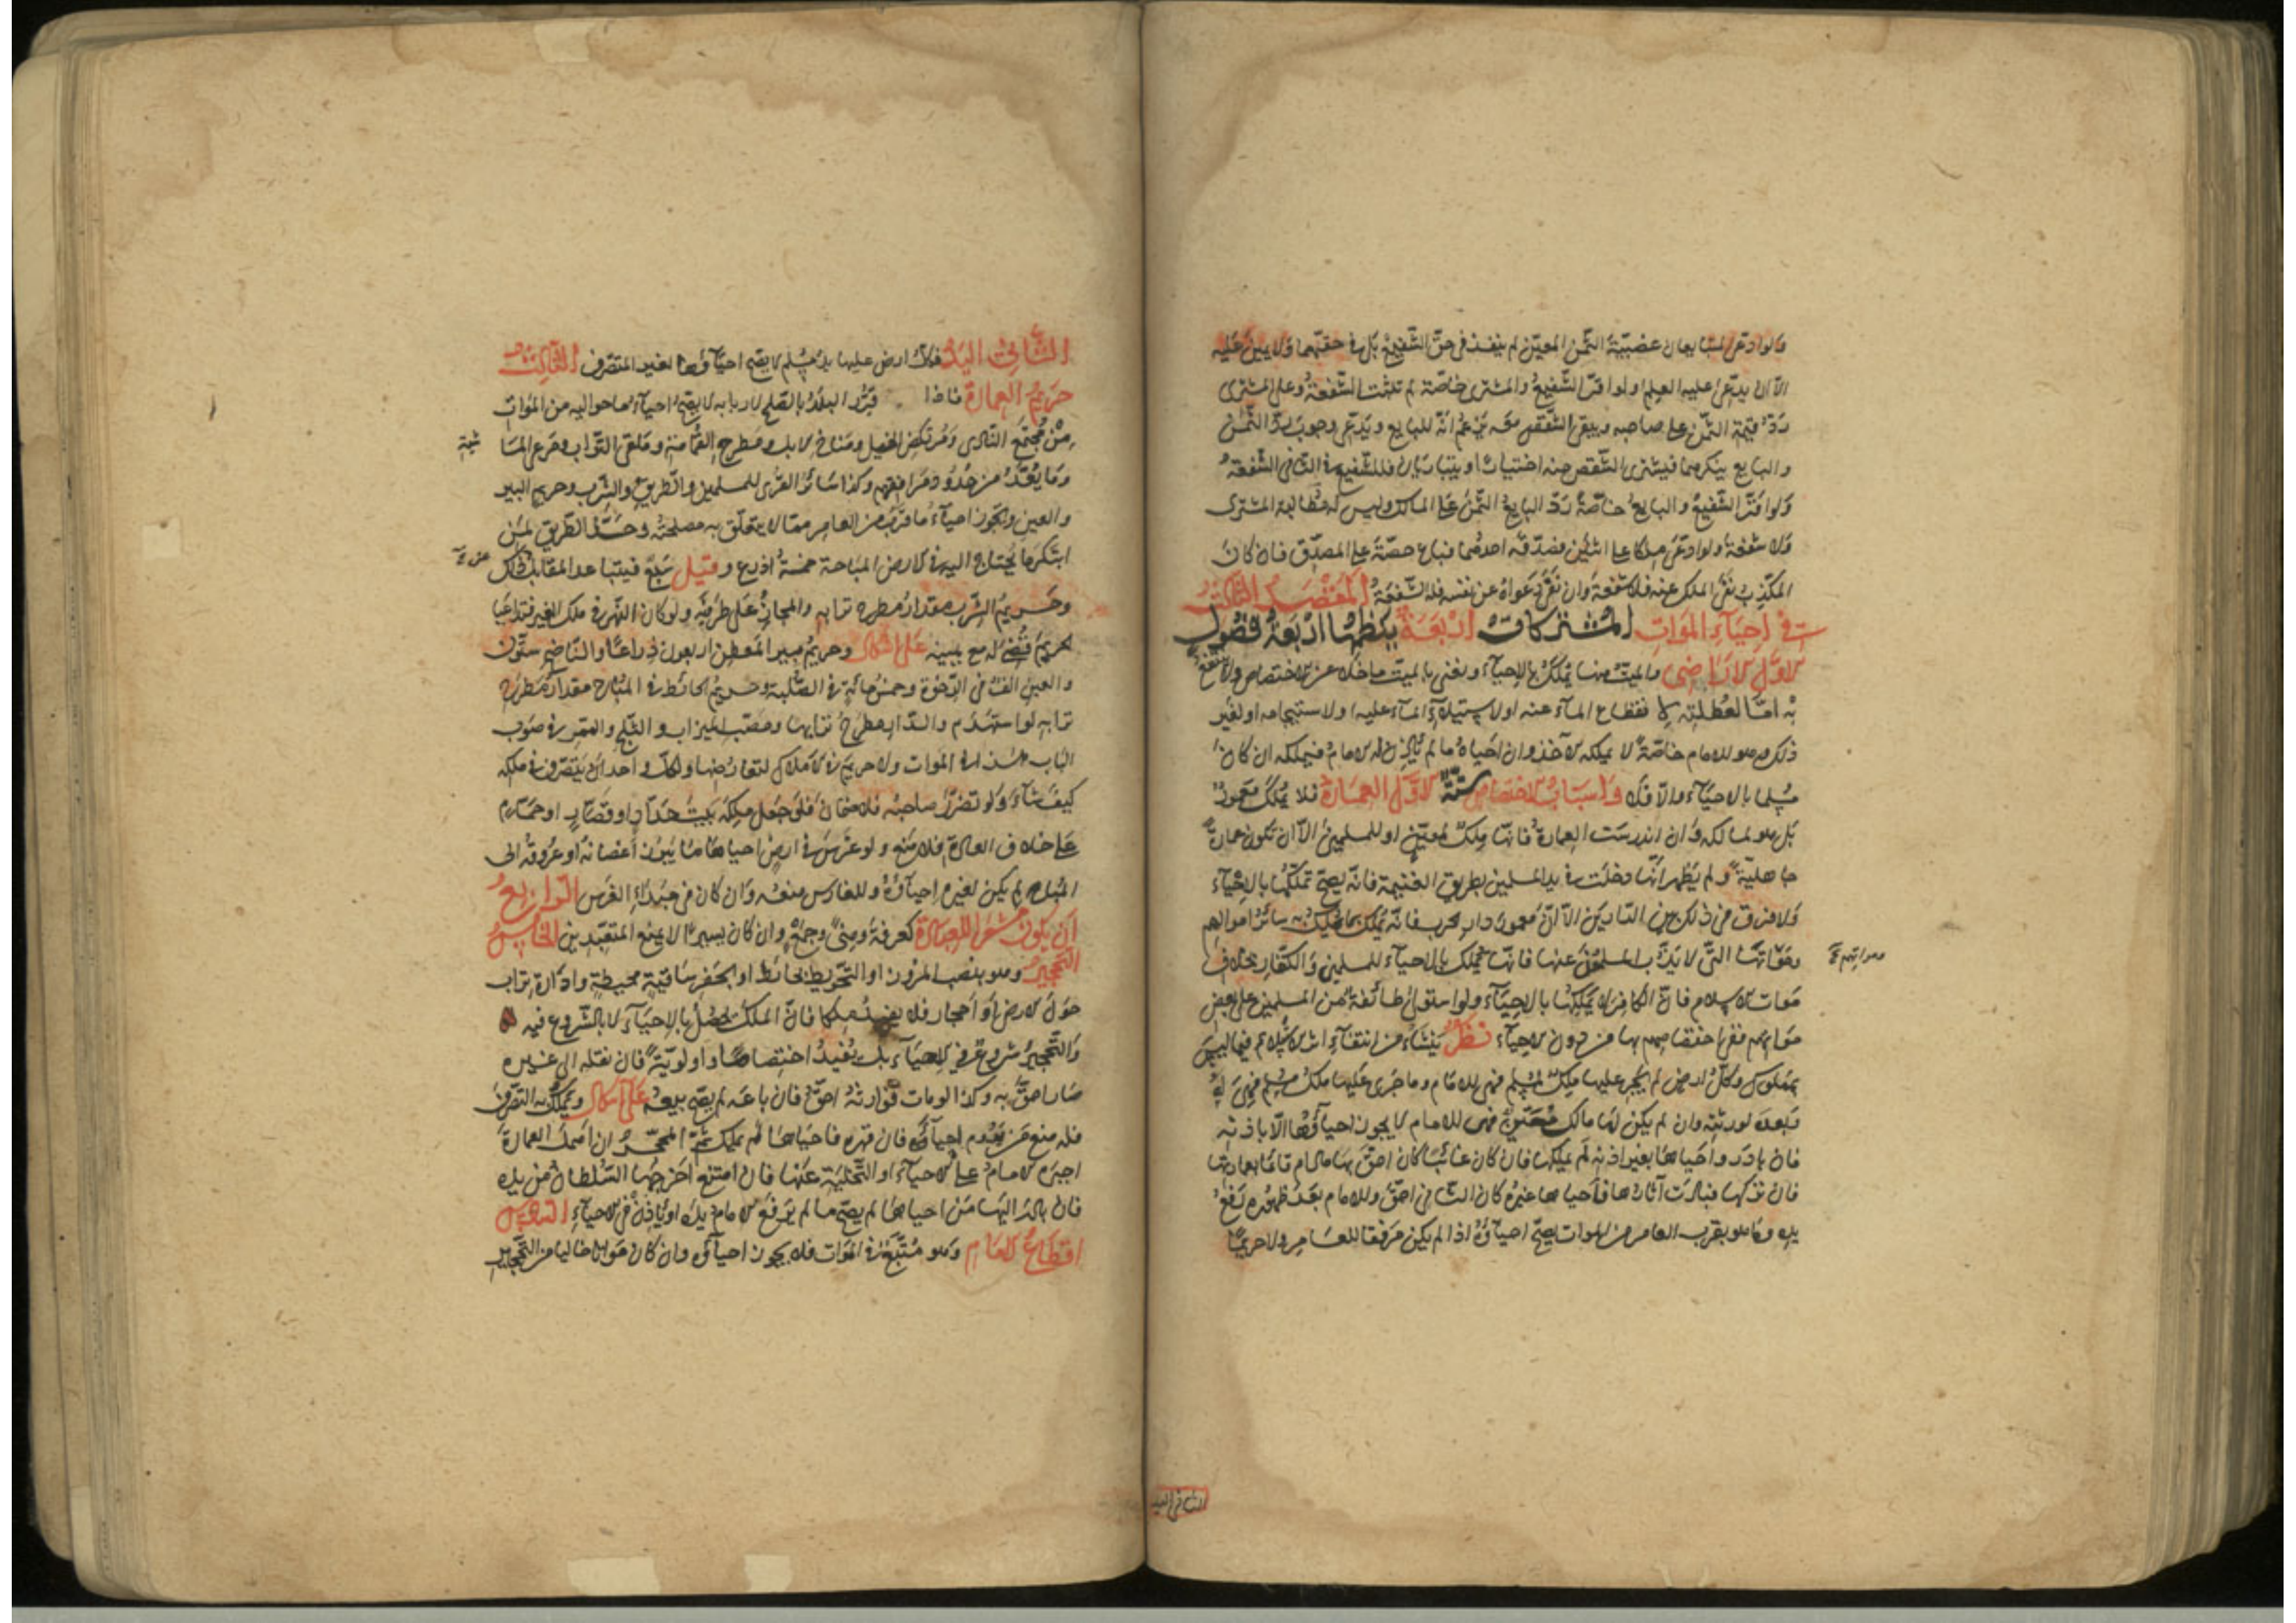 ولو ادعى المتبايعان غصبية الثمن المعين لم ينفذ في حق الشفيع بل في حقهما ولا يمين عليه
الا ان يدعى عليه العلم ولو اقر الشفيع والمشترى خاصة لم تثبت الشفعة وعلى المشترى
رد قيمة الثمن على صاحبه ويبقى الشقص معه يزعم انه للبايع ويدعى وجوب رد الثمن
والبايع ينكرهما فيشترى الشقص منه اختيارا ويتباريان فللشفيع في الثاني الشفعة
ولو اقر الشفيع والبايع خاصة رد البايع الثمن على المالك وليس له مطالبة المشترى
ولا شفعة ولو ادعى ملكا على اثنين فصدقه احدهما فباع حصة على المصدق فان كان
المكذب نفى الملك عنه فلا شفعة وان نفى دعواه عن نفسه فله الشفعة المقصد الثالث
في احياء الموات المشتركات اربعة ينظمها اربعة فصول
الاول الاراضي والميت منها يملك بالاحياء ونعني بالميت ما خلا عن الاختصاص ولا ينتفع
به اما لعطلته لانقطاع الماء عنه او لاستيلاء الماء عليه او لاستيجامه او لغير
ذلك وهو للامام خاصة لا يملكه الآخذ وان احياه ما لم يأذن له الامام فيملكه ان كان
مسلما بالاحياء والا فلا واسباب الاختصاص ستة الاول العمارة فلا يملك معمور
بل هو لمالكه وان اندرست العمارة فانها ملك لمعين او للمسلمين الا ان تكون عمارة
جاهلية ولم يظهر انها دخلت في يد المسلمين بطريق الغنيمة فانه يصح تملكها بالاحياء
ولا فرق في ذلك بين الدارين الا ان معمور دار الحرب فانه يملك بما يملك به سائر اموالهم
ومواتها التي لا يذب المسلمون عنها فانها تملك بالاحياء للمسلمين والكفار بخلاف
موات الاسلام فان الكافر لا يملكها بالاحياء ولو استولى طائفة من المسلمين على بعض
مواتهم ففي اختصاصهم بها من دون الاحياء نظر ينشاء من انتفاء اثر الاستيلاء فيما ليس
بمملوك وكل ارض لم يجر عليها ملك لمسلم فهي للامام وما جرى عليها ملك مسلم فهي له
وبعده لورثته وان لم يكن لها مالك معين فهي للامام لا يجوز احياؤها الا باذنه
فان بادر واحياها بغير اذنه لم يملكها فان كان غائبا كان احق بها مادام قائما بعمارتها
فان تركها فبادت آثارها فاحياها غيره كان الثاني احق وللامام بعد ظهوره رفع
يده وما هو بقرب العامر من الموات يصح احياؤه اذا لم يكن مرفقا للعامر ولا حريما
ومواتهم
الثاني اليد
الثاني اليد فكل ارض عليها يد مسلم لا يصح احياؤها لغير المتصرف الثالث
حريم العمارة فاذا قرر البلد بالصلح لاربابه لا يصح احياء ما حواليه من الموات
من مجتمع النادى ومرتكض الخيل ومناخ الابل ومطرح القمامة وملقى التراب ومرعى الما
شية
وما يعد من حدود مرافقهم وكذا سائر القرى للمسلمين والطريق والشرب وحريم البير
والعين ويجوز احياء ما قرب من العامر مما لا يتعلق به مصلحته وحد الطريق لمن
ابتكر ما يحتاج اليه في الارض المباحة خمسة اذرع وقيل سبع فيتباعد المقابل ذلك
وحريم الشرب مقدار مطرح ترابه والمجاز على طرفيه ولو كان النهر في ملك الغير فتداعيا
الحريم قضى له مع يمينه على اشكال وحريم بير المعطن اربعون ذراعا والناضح ستون
والعين الف في الرخوة وخمس مائة في الصلبة وحريم الحائط في المباح مقدار مطرح
ترابه لو استهدم والدار مطرح ترابها ومصب الميزاب والثلج والممر في صوب
الباب هذا في الموات ولا حريم في الاملاك لتعارضها ولكل واحد ان يتصرف في ملكه
كيف شاء ولو تضرر صاحبه فلا ضمان فلو جعل ملكه بيت حداد او قصار او حمام
على خلاف العادة فلا منع ولو غرس في ارض احياها ما يبرز اغصانه او عروقه الى
المباح لم يكن لغيره احياؤه وللغارس منعه وان كان في مبداء الغرس الرابع
ان يكون مشعرا للعبادة كعرفة ومنى وجمع وان كان يسيرا لا يمنع المتعبدين الخامس
التحجير وهو بنصب المروز او التحويط بحائط او بحفر ساقية محيطة وادارة تراب
حول الارض او احجار فلا يفيد ملكا فان الملك يحصل بالاحياء لا بالشروع فيه
والتحجير شروع في الاحياء بل يفيد اختصاصا واولوية فان نقله الى غيره
صار احق به وكذا لو مات فوارثه احق فان باعه لم يصح بيعه على اشكال ويملك به التصرف
فله منع من يروم احياؤه فان قهره فاحياها لم يملك ثم المحجر ان اهمل العمارة
اجبره الامام على الاحياء او التخلية عنها فان امتنع اخرجها السلطان من يده
فان بادر اليها من احياها لم يصح ما لم يرفع الامام يده او يأذن في الاحياء السادس
اقطاع الامام وهو متبع في الموات فلا يجوز احياؤه وان كان مواتا خاليا من التحجير